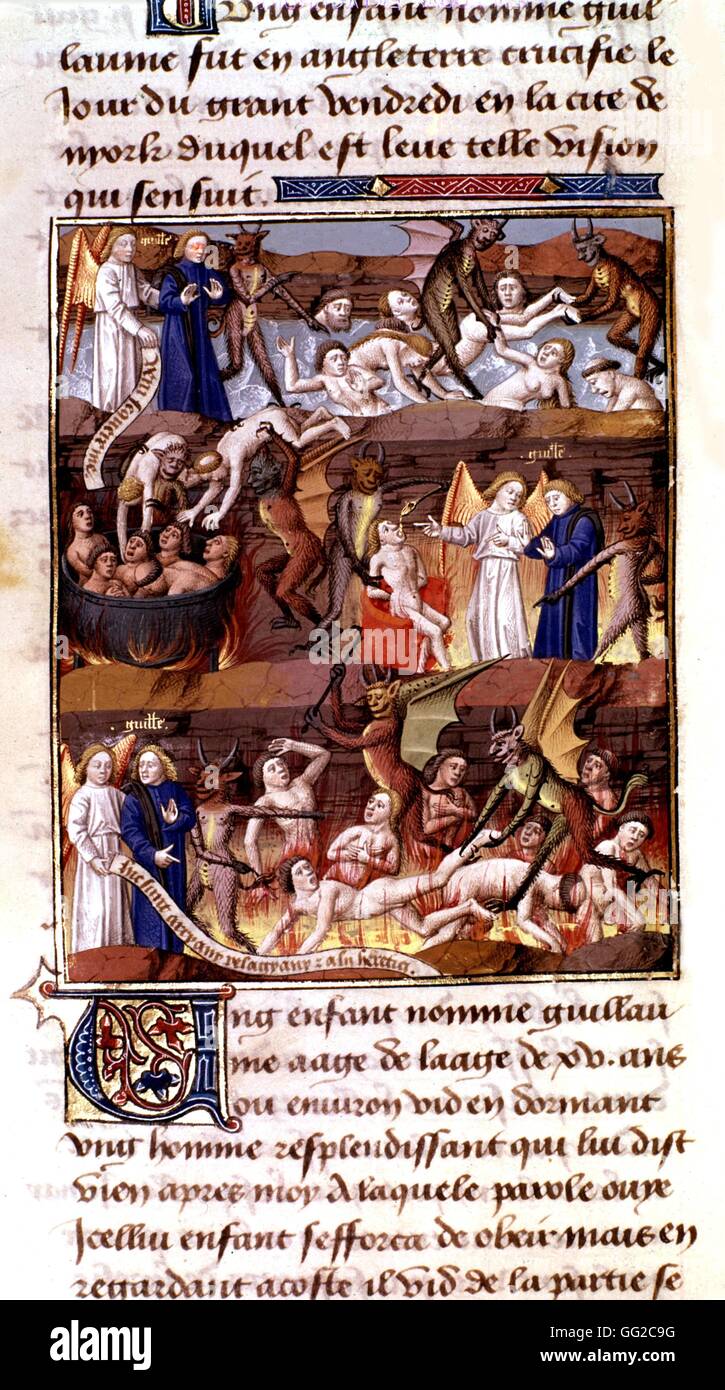 Ung enfant nomme guil
laume fut en angleterre crucifie le
Jour du grant vendredi en la cite de
nyork duquel est leue telle vision
qui sensuit.
guille
guille
guille
Ung enfant nomme guillau
me aage de laage de xv. ans
ou environ vid en dormant
ung homme resplendissant qui lui dist
vien apres moy A laquele parole ouye
Icellui enfant sefforca de obeir mais en
regardant acoste il vid de la partie se
alamy stock photo
alamy
Image ID: GG2C9G
www.alamy.com